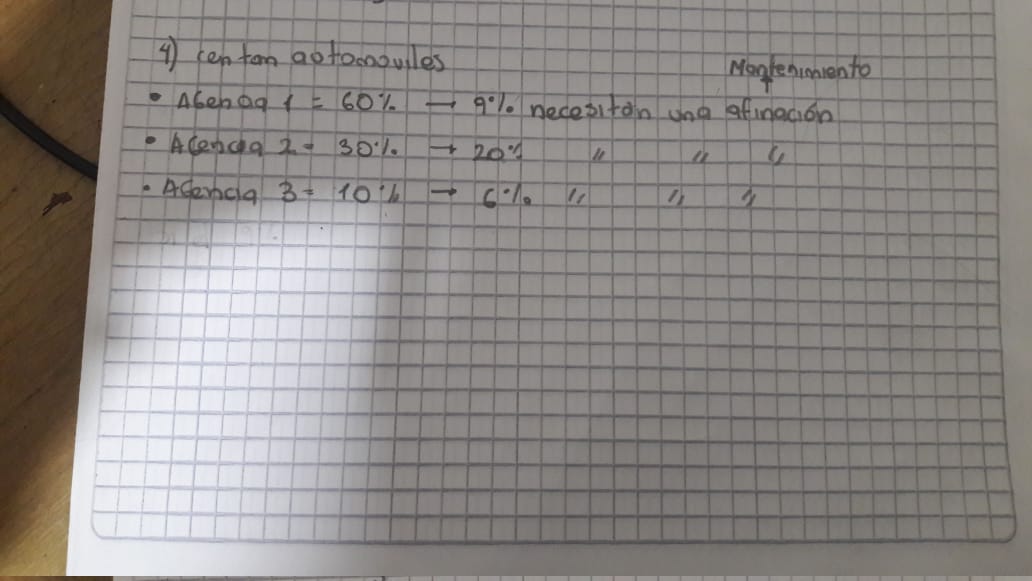 4) rentan automoviles
Mantenimiento
• Agencia 1 = 60% → 9% necesitan una afinación
• Agencia 2 = 30% → 20% " " "
• Agencia 3 = 10% → 6% " " "